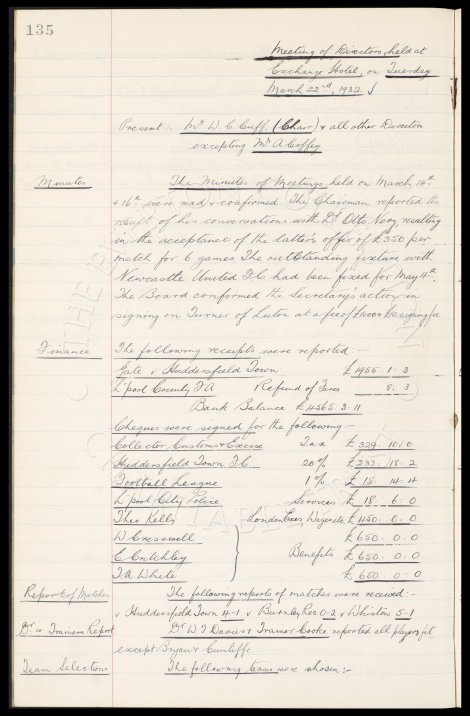 135
Meeting of Directors, held at
Exchange Hotel, on Tuesday
March 22nd, 1932
Present :- Mr W. C. Cuff, (Chair) & all other Directors
excepting Mr A Coffey
Minutes The Minutes of Meetings held on March 14th
& 16th were read & confirmed. The Chairman reported the
result of his conversations with Dr Otto Nerz, resulting
in the acceptance of the latter's offer of £350 per
match for 6 games. The outstanding fixture with
Newcastle United F.C. had been fixed for May 4th.
The Board confirmed the Secretary's action in
signing on Turner of Luton at a fee of £1000 & £10 signing fee
Finance The following receipts were reported :-
Gate v Huddersfield Town £1955 . 1 . 3
L'pool County F.A Refund of Fares 8 . 3
Bank Balance £4565 . 3 . 11
Cheques were signed for the following :-
Collector Customs & Excise Tax £329 . 10 . 0
Huddersfield Town F.C. 20% £233 . 18 . 2
Football League 1% £15 . 14 . 4
L'pool City Police Services £18 . 6 . 0
Theo Kelly London Exes, Wages etc £450 . 0 . 0
W Cresswell £650 . 0 . 0
E Critchley Benefits £650 . 0 . 0
T.A. White £650 . 0 . 0
Report of Matches The following reports of matches were received :-
v Huddersfield Town 4-1 v Burnley Res 0-2 v Whiston 5-1
Dr. & Trainers Report Dr W J Davies & Trainer Cooke reported all players fit,
except Bryan & Cunliffe
Team Selections The following teams were chosen :-